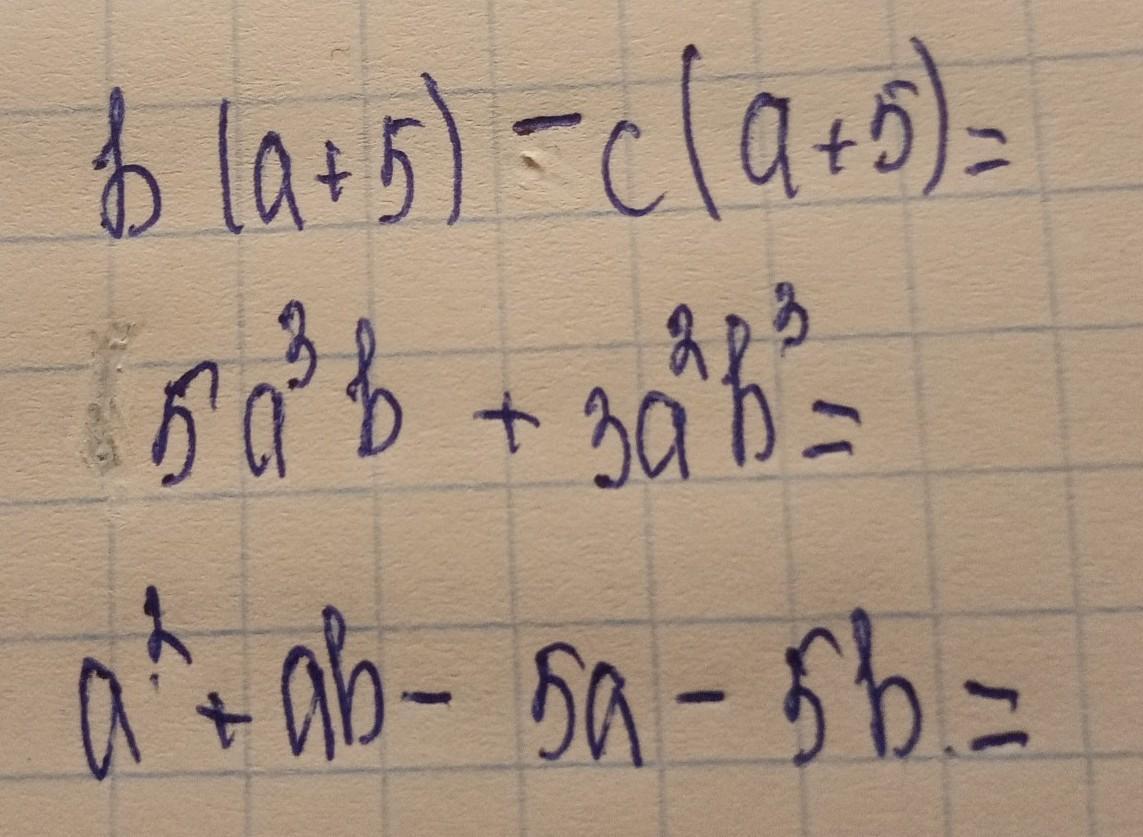 b (a+5) - c (a+5) =
5a³b + 3a²b³ =
a² + ab - 5a - 5b =